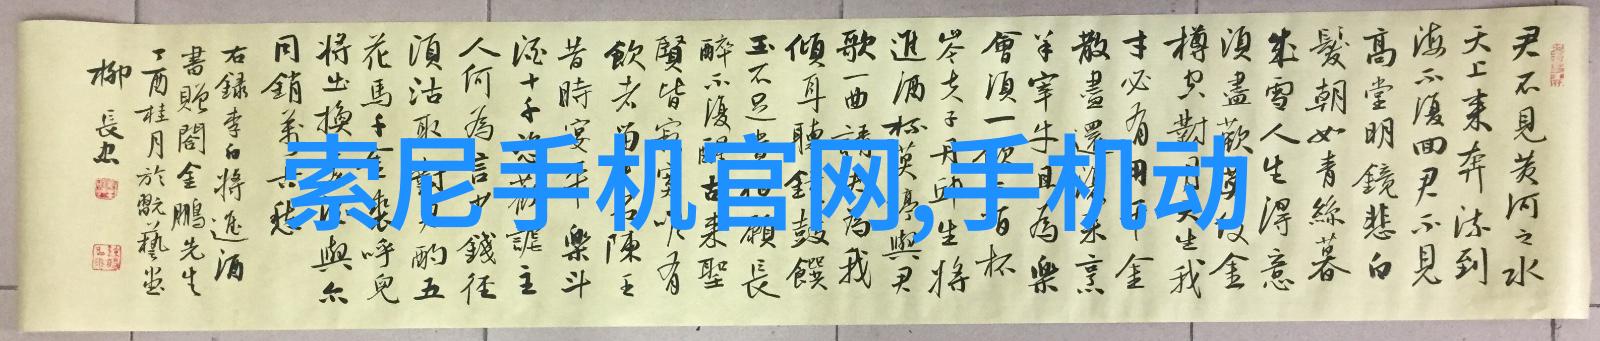 君不見黄河之水
天上来奔流到
海不復回君不見
高堂明鏡悲白
髮朝如青絲暮
成雪人生得意
須盡歡莫使金
樽空對月天生我
才必有用千金
散盡還復来烹
羊宰牛且為樂
會須一飲三百杯
岑夫子丹丘生將
進酒杯莫停與君
歌一曲請君為我
傾耳聽鐘鼓饌
玉不足貴但願長
醉不復醒古来聖
賢皆寂寞唯有
飲者留其名陳王
昔時宴平樂斗
酒十千恣歡謔主
人何為言少錢徑
須沽取對君酌五
花馬千金裘呼兒
將出換美酒與尔
同銷萬古愁
右録李白將進酒
書贈閣金鵬先生
丁酉桂月於翫藝堂
柳長忠
索尼手机官网,手机动